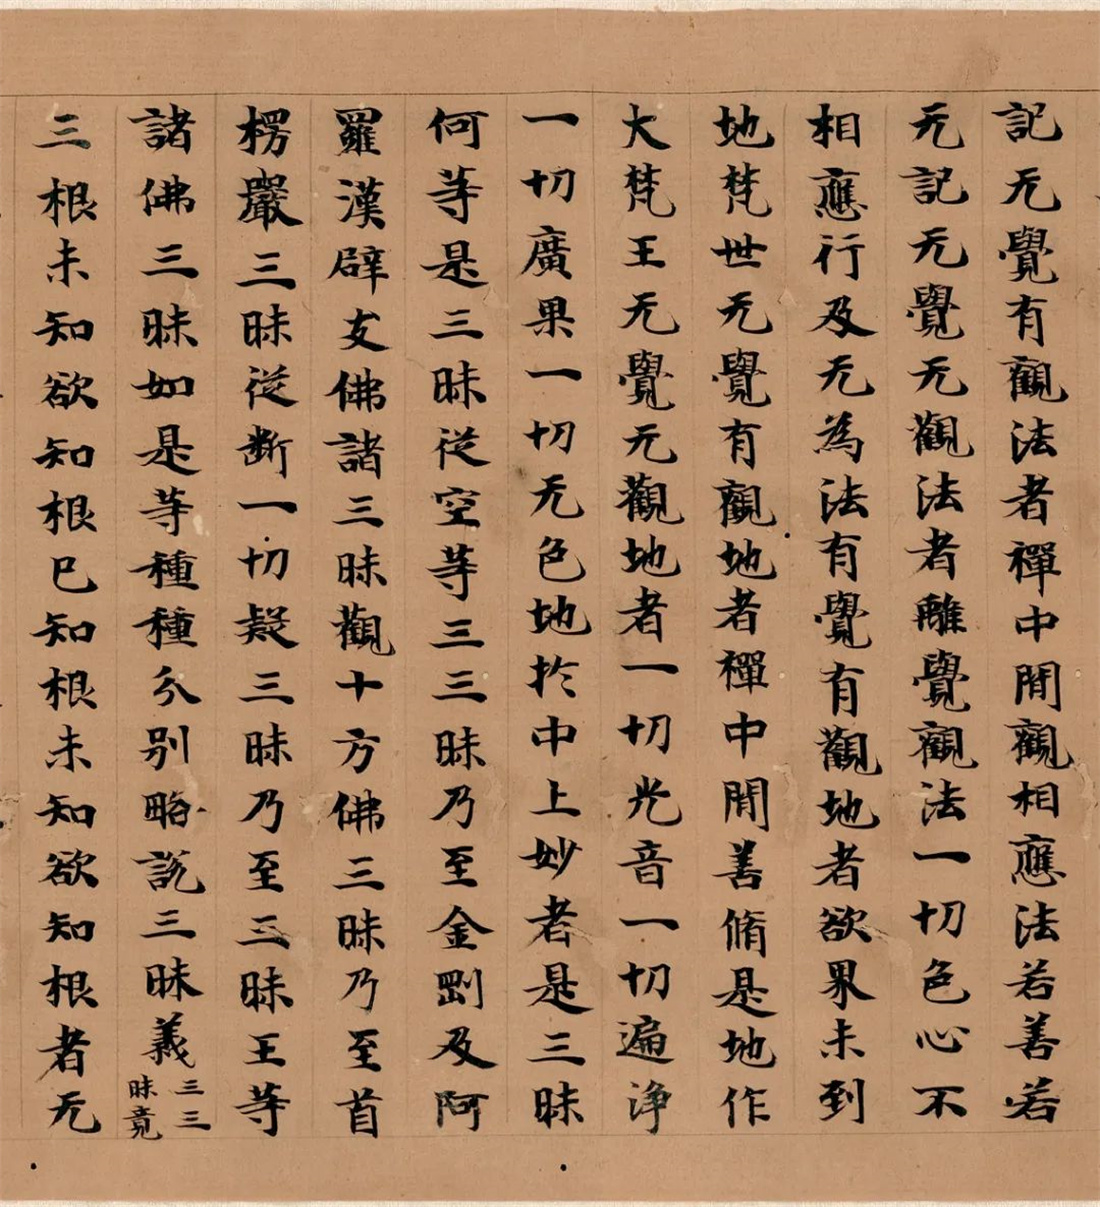 記无覺有觀法者禪中間觀相應法若善若
无記无覺无觀法者離覺觀法一切色心不
相應行及无為法有覺有觀地者欲界未到
地梵世无覺有觀地者禪中間善脩是地作
大梵王无覺无觀地者一切光音一切遍淨
一切廣果一切无色地於中上妙者是三昧
何等是三昧從空等三三昧乃至金剛及阿
羅漢辟支佛諸三昧觀十方佛三昧乃至首
楞嚴三昧從斷一切疑三昧乃至三昧王等
諸佛三昧如是等種種分別略說三昧義三三昧竟
三根未知欲知根已知根未知欲知根者无